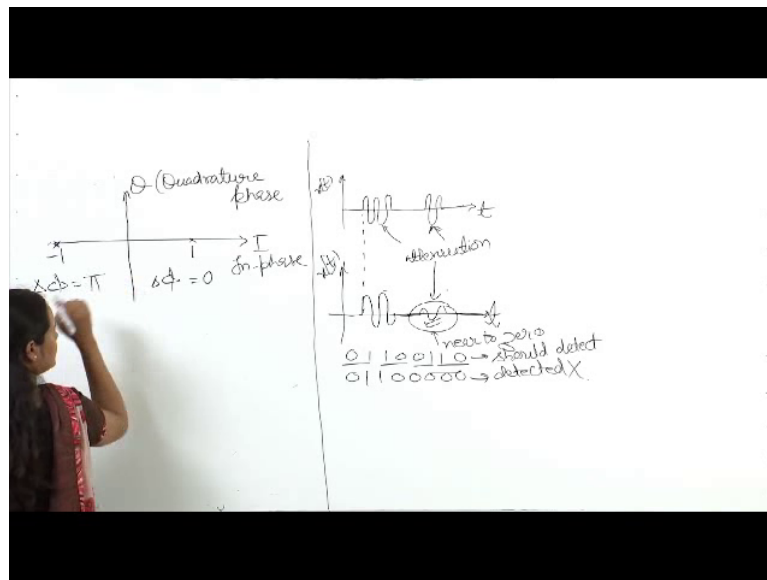 Q (Quadrature
phase
I
-1
1
In-phase
Δφ = π
Δφ = 0
t
Attenuation
t
near to zero
0 1 1 0 0 1 1 0 → should detect
0 1 1 0 0 0 0 0 → detected X